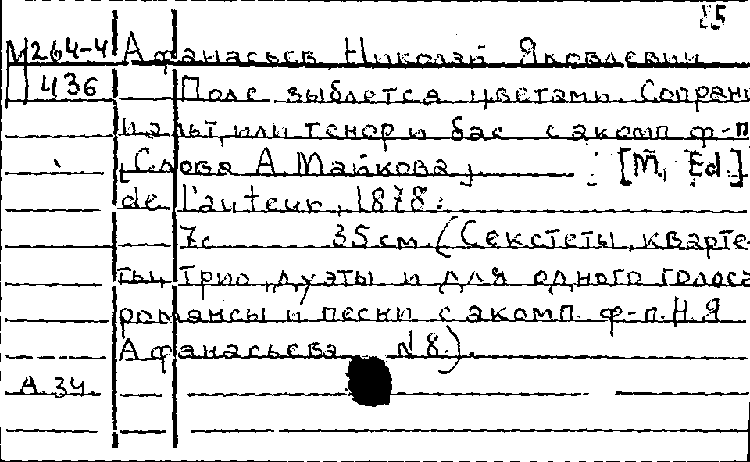 15
М264-4 Афанасьев Николай Яковлевич
436 Поле зыблется цветами. Сопрано
и альт, или тенор и бас с акомп ф-п
[Слова А. Майкова] : [М, Ed.]
de l'auteur, 1878.
7с 35см. (Секстеты, кварте-
ты, трио, дуэты и для одного голоса
романсы и песни с акомп. ф-п. Н.Я
Афанасьева N 8.).
А 34